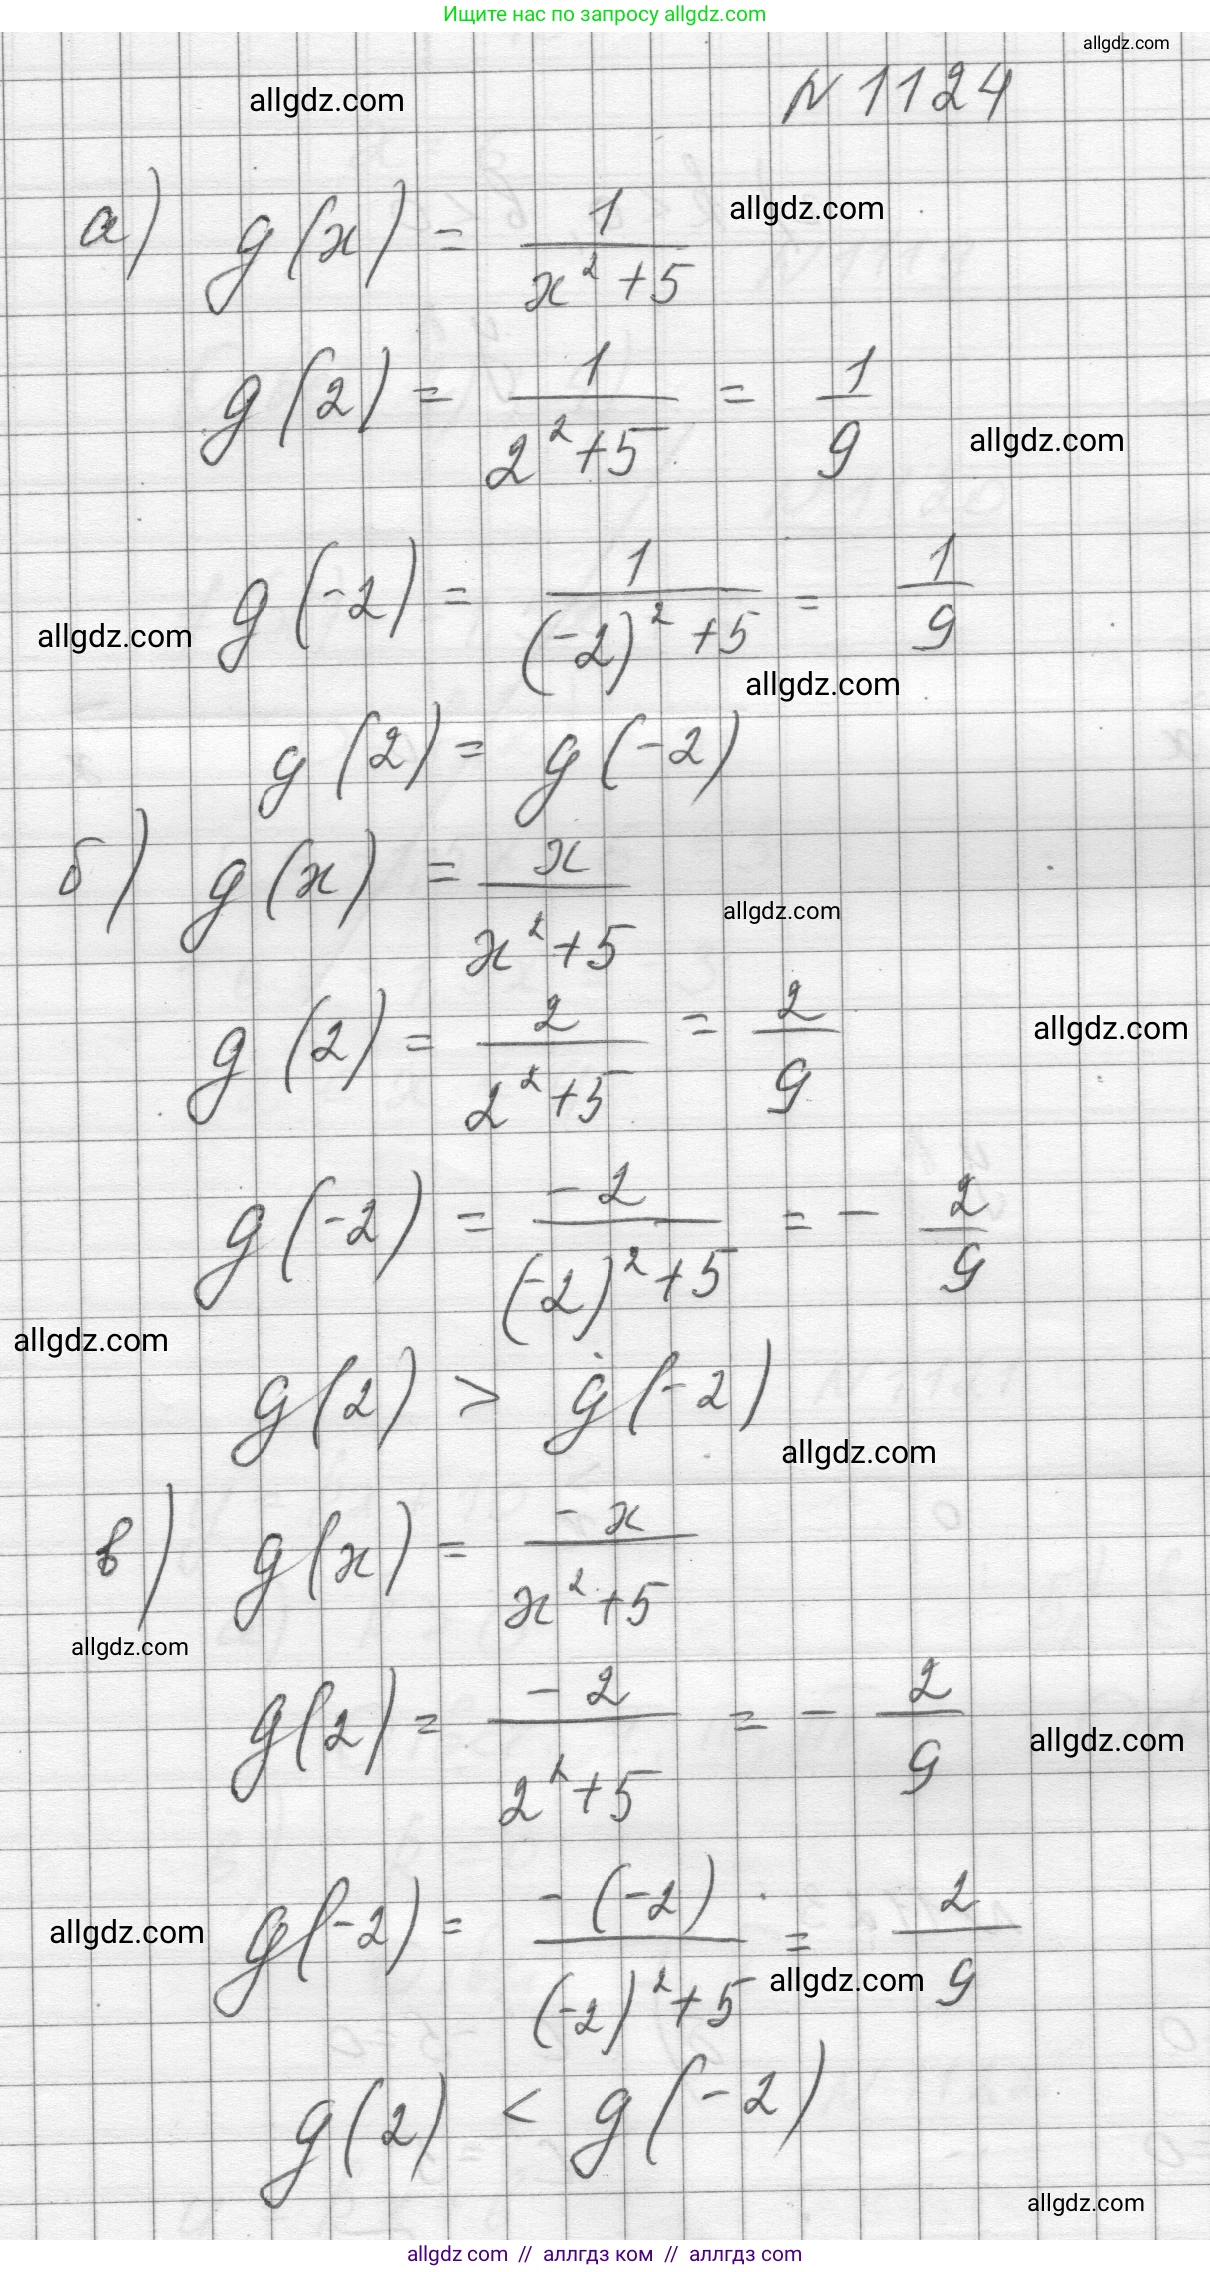 Ищите нас по запросу allgdz.com
allgdz.com
allgdz.com
N 1124
а) g(x) = 1/(x² + 5)
allgdz.com
g(2) = 1/(2² + 5) = 1/9
allgdz.com
g(-2) = 1/((-2)² + 5) = 1/9
allgdz.com
allgdz.com
g(2) = g(-2)
б) g(x) = x/(x² + 5)
allgdz.com
g(2) = 2/(2² + 5) = 2/9
allgdz.com
g(-2) = -2/((-2)² + 5) = - 2/9
allgdz.com
g(2) > g(-2)
allgdz.com
в) g(x) = -x/(x² + 5)
allgdz.com
g(2) = -2/(2² + 5) = - 2/9
allgdz.com
g(-2) = -(-2)/((-2)² + 5) = 2/9
allgdz.com
allgdz.com
g(2) < g(-2)
allgdz.com
allgdz com // аллгдз ком // аллгдз com